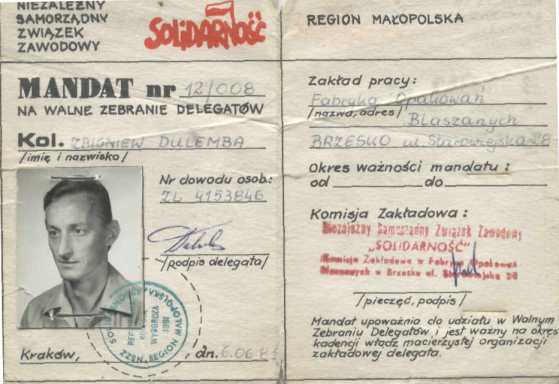 NIEZALEŻNY
SAMORZĄDNY
ZWIĄZEK
ZAWODOWY
SOLIDARNOŚĆ
MANDAT nr 12/008
NA WALNE ZEBRANIE DELEGATÓW
Kol. ZBIGNIEW DULEMBA
/imię i nazwisko/
Nr dowodu osob:
ZL 4153846
/podpis delegata/
Kraków, dn. 6.06.81
REGION MAŁOPOLSKA
Zakład pracy:
Fabryka Opakowań
/nazwa, adres/ Blaszanych
BRZESKO ul. Starowiejska 28
Okres ważności mandatu:
od do
Komisja Zakładowa:
Niezależny Samorządny Związek Zawodowy
„SOLIDARNOŚĆ"
Komisja Zakładowa w Fabryce Opakowań
Blaszanych w Brzesku ul. Starowiejska 28
/pieczęć, podpis/
Mandat upoważnia do udziału w Walnym
Zebraniu Delegatów i jest ważny na okres
kadencji władz macierzystej organizacji
zakładowej delegata.